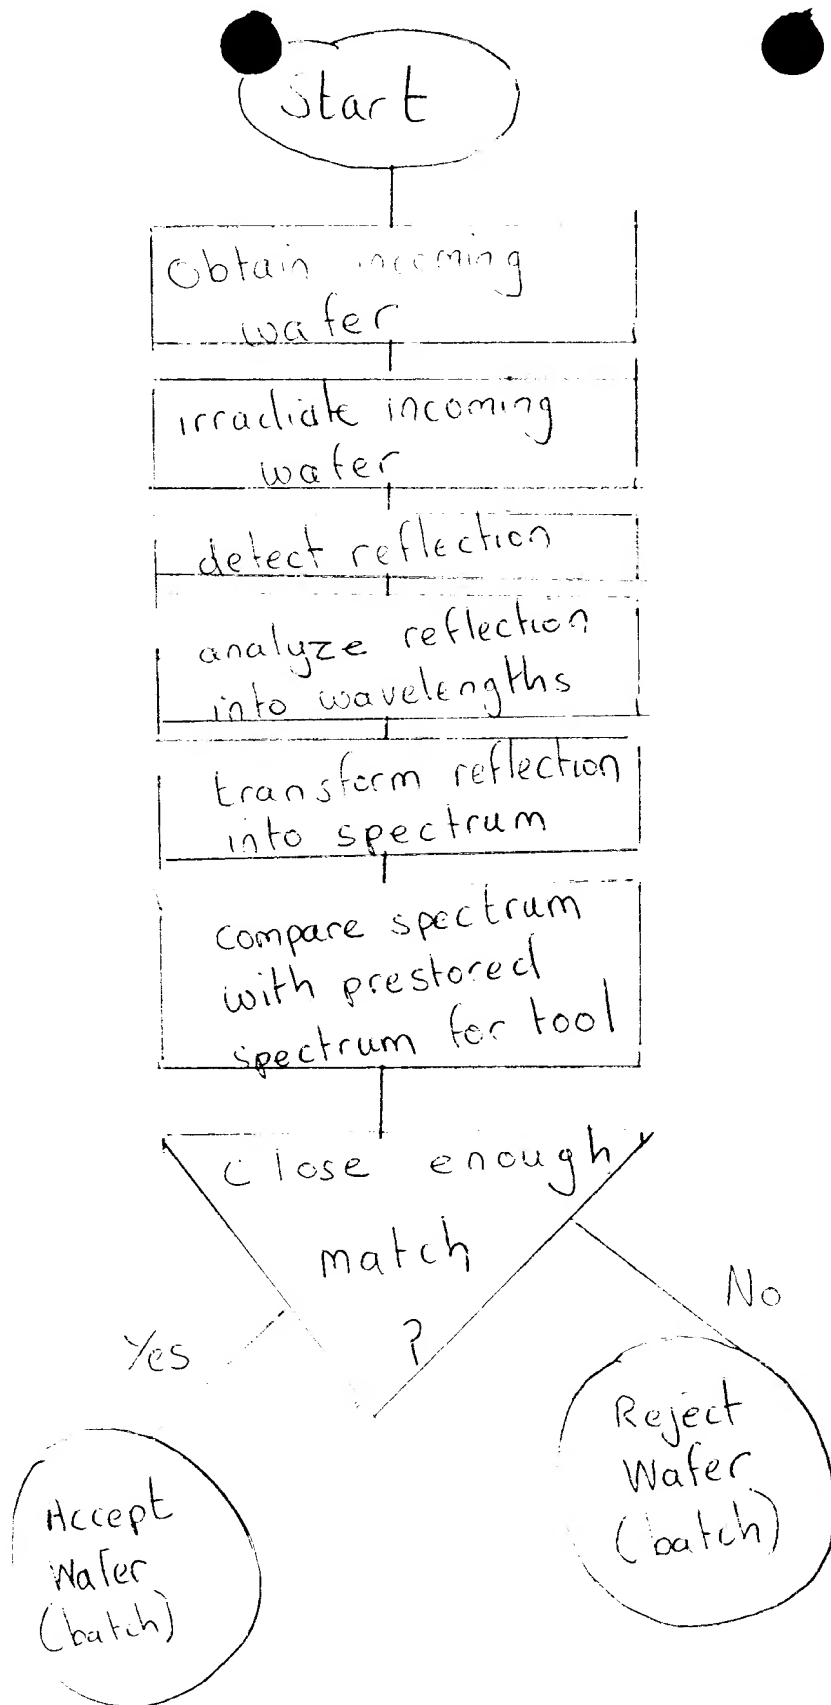 Start
Obtain incoming
wafer
irradiate incoming
wafer
detect reflection
analyze reflection
into wavelengths
transform reflection
into spectrum
compare spectrum
with prestored
spectrum for tool
Close enough
match
?
Yes
No
Reject
Wafer
(batch)
Accept
Wafer
(batch)